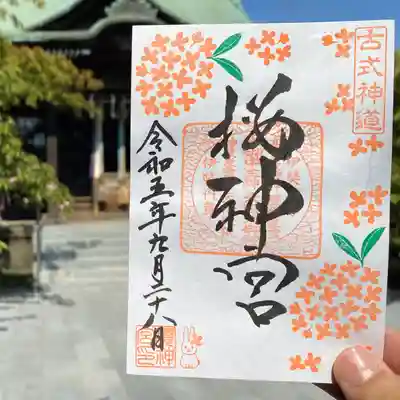 古式神道
櫻神宮
令和五年九月二十八日